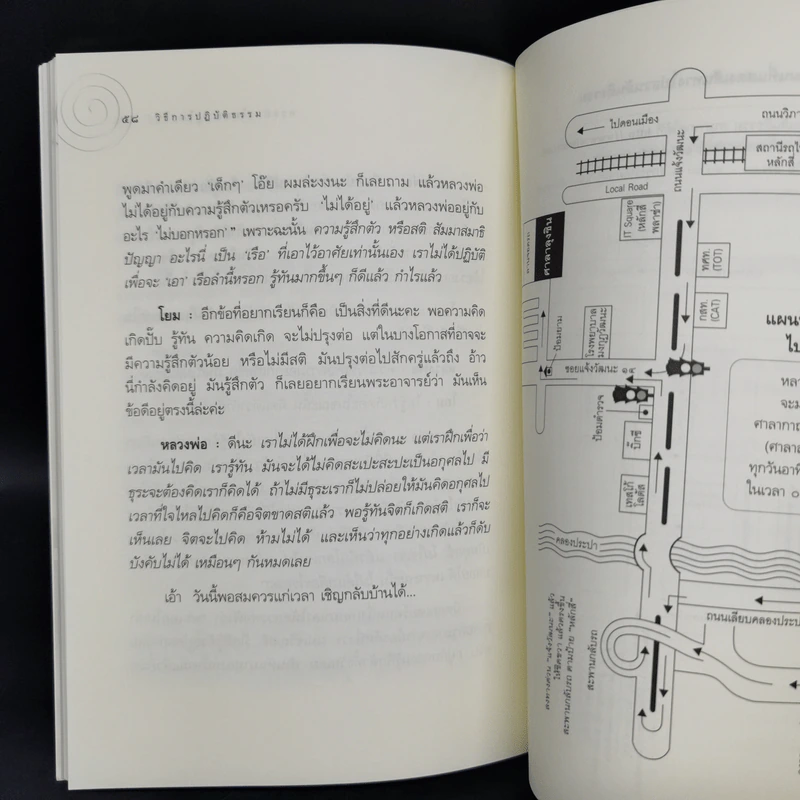 ๕๘ วิธีการปฏิบัติธรรม
พูดมาคำเดียว 'เด็กๆ' โอ๊ย ผมล่ะงงนะ ก็เลยถาม แล้วหลวงพ่อ
ไม่ได้อยู่กับความรู้สึกตัวเหรอครับ 'ไม่ได้อยู่' แล้วหลวงพ่ออยู่กับ
อะไร 'ไม่บอกหรอก'" เพราะฉะนั้น ความรู้สึกตัว หรือสติ สัมมาสมาธิ
ปัญญา อะไรนี่ เป็น 'เรือ' ที่เอาไว้อาศัยเท่านั้นเอง เราไม่ได้ปฏิบัติ
เพื่อจะ 'เอา' เรือลำนี้หรอก รู้ทันมากขึ้นๆ ก็ดีแล้ว กำไรแล้ว
โยม : อีกข้อที่อยากเรียนก็คือ เป็นสิ่งที่ดีนะคะ พอความคิด
เกิดปั๊บ รู้ทัน ความคิดเกิด จะไม่ปรุงต่อ แต่ในบางโอกาสที่อาจจะ
มีความรู้สึกตัวน้อย หรือไม่มีสติ มันปรุงต่อไปสักครู่แล้วถึง อ้าว
นี่กำลังคิดอยู่ มันรู้สึกตัว ก็เลยอยากเรียนพระอาจารย์ว่า มันเห็น
ข้อดีอยู่ตรงนี้ล่ะค่ะ
หลวงพ่อ : ดีนะ เราไม่ได้ฝึกเพื่อจะไม่คิดนะ แต่เราฝึกเพื่อว่า
เวลามันไปคิด เรารู้ทัน มันจะได้ไม่คิดสะเปะสะปะเป็นอกุศลไป มี
ธุระจะต้องคิดเราก็คิดได้ ถ้าไม่มีธุระเราก็ไม่ปล่อยให้มันคิดอกุศลไป
เวลาที่ใจไหลไปคิดก็คือจิตขาดสติแล้ว พอรู้ทันจิตก็เกิดสติ เราก็จะ
เห็นเลย จิตจะไปคิด ห้ามไม่ได้ และเห็นว่าทุกอย่างเกิดแล้วก็ดับ
บังคับไม่ได้ เหมือนๆ กันหมดเลย
เอ้า วันนี้พอสมควรแก่เวลา เชิญกลับบ้านได้...
ถนนวิภา
ไปดอนเมือง
สถานีรถไ
หลักสี่
ถนนแจ้งวัฒนะ
Local Road
IT Square
(หลักสี่
พลาซ่า)
ศาลาลุงชิน
ทศท.
(TOT)
กสท.
(CAT)
โรงพยาบาล
มงกุฎวัฒนะ
ป้อมยาม
ซอยแจ้งวัฒนะ ๑๔
ป้อมตำรวจ
บิ๊กซี
เทสโก้
โลตัส
แผน
ไป
หลว
จะม
ศาลากา
(ศาลา
ทุกวันอาทิ
ในเวลา ๐
คลองประปา
ถนนเลียบคลองประป
สะพานกลับรถ
ให้ชิดขวา แล้วตรงขึ้น
สะพานกลับรถ ตามป้าย "หลักสี่"